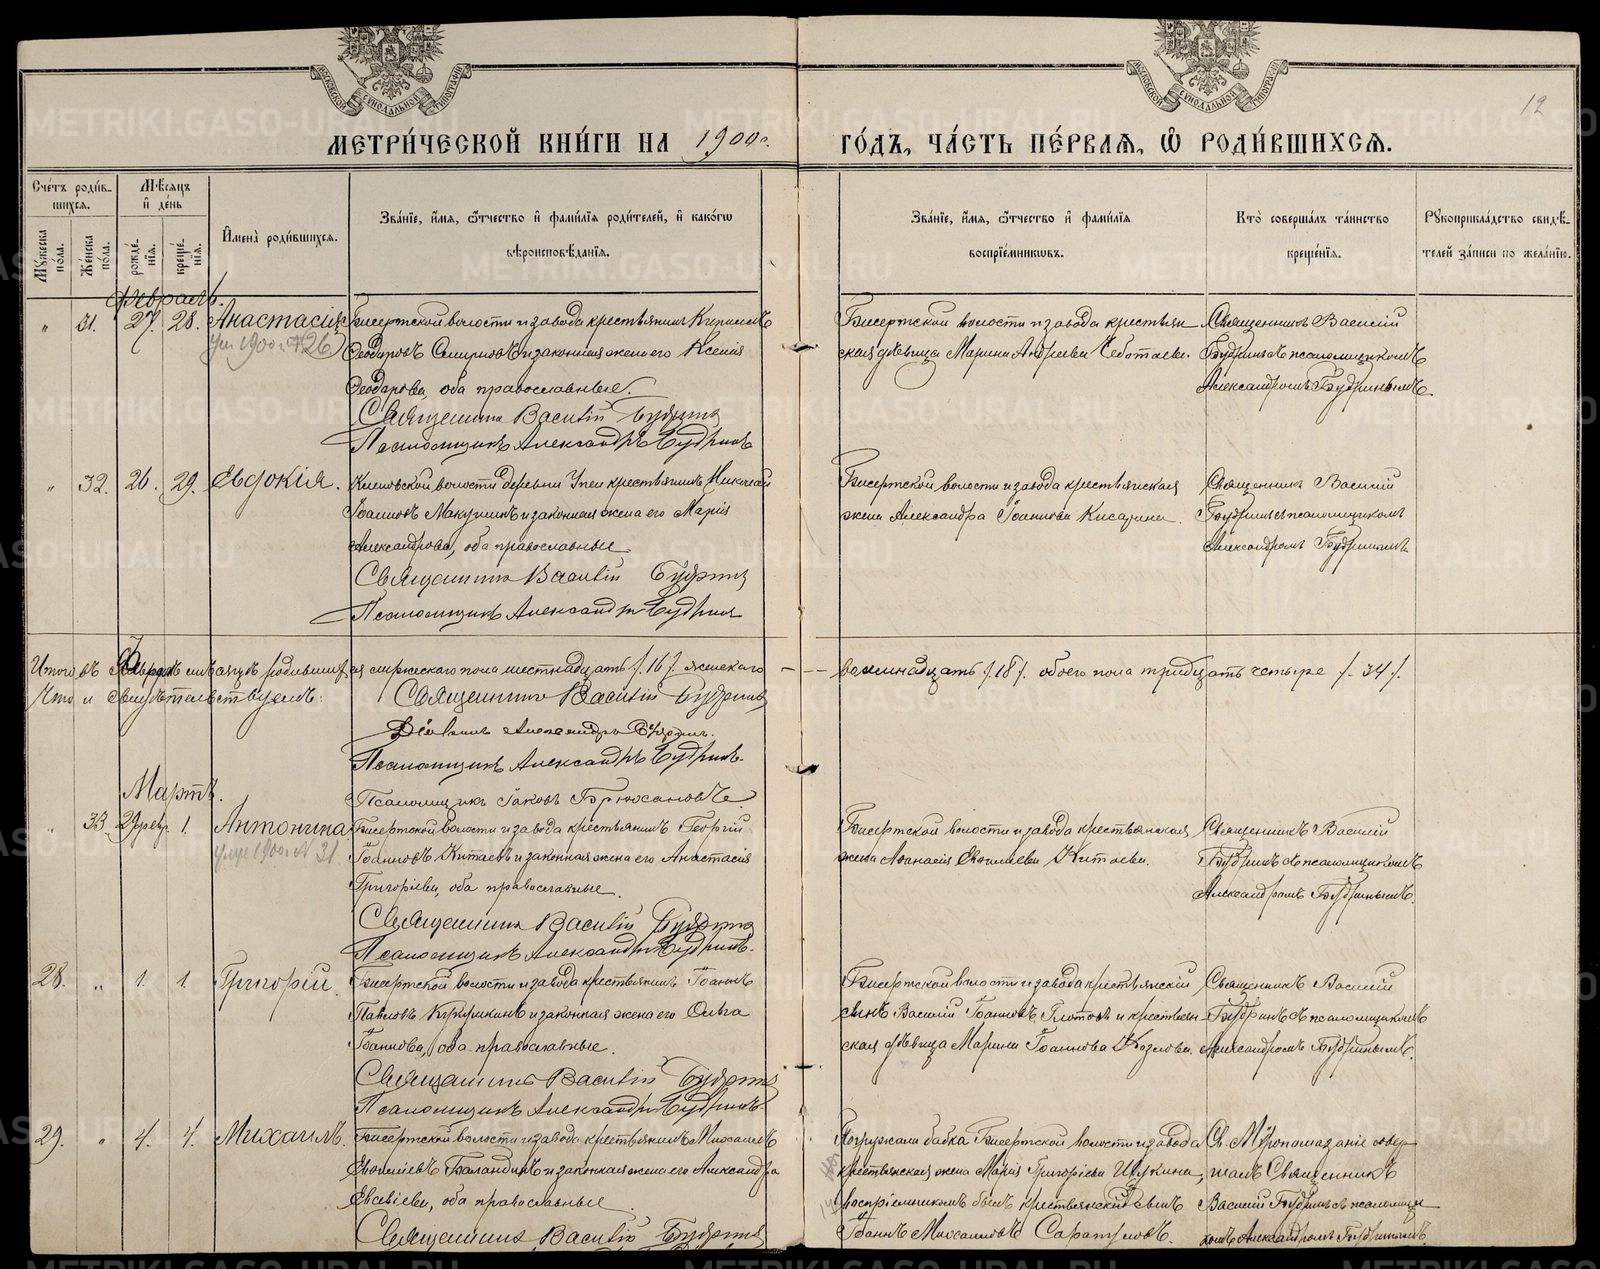 МЕТРИ́ЧЕСКОЙ КНИ́ГИ НА 1900 г. ГО́ДЪ, ЧА́СТЬ ПЕ́РВАѦ, Ѽ РОДИ́ВШИХСѦ.
12
Сче́тъ роди́вшихсѧ.
Мꙋ́жеска по́ла.
Же́нска по́ла.
Мѣ́сяцъ и҆ де́нь
рожде́нїѧ.
креще́нїѧ.
И҆мена̀ роди́вшихсѧ.
Зва́нїе, и҆́мѧ, ѻ҆́тчество и҆ фами́лїѧ роди́телей, и҆ како́гѡ вѣроисповѣ́данїѧ.
Зва́нїе, и҆́мѧ, ѻ҆́тчество и҆ фами́лїѧ воспрїе́мникѡвъ.
Кто̀ соверша́лъ та́инство креще́нїѧ.
Рꙋкоприкла́дство свидѣ́телей за́писи по жела́нїю.
Февраль.
" 31. 27. 28. Анастасія
ум 1900 г. №26
Бисертской волости и завода крестьянинъ Кириллъ
Ѳеодоровъ Смирновъ и законная жена его Ксенія
Ѳеодорова, оба православные.
Священникъ Василій Будринъ
Псаломщикъ Александръ Будринъ
Бисертской волости и завода крестьян
ская дѣвица Марина Андреева Чеботаева.
Священникъ Василій
Будринъ съ псаломщикомъ
Александромъ Будринымъ.
" 32. 26. 29. Евдокія.
Кленовской волости деревни Упеи крестьянинъ Николай
Іоанновъ Макушинъ и законная жена его Марія
Александрова, оба православные.
Священникъ Василій Будринъ
Псаломщикъ Александръ Будринъ
Бисертской волости и завода крестьянская
жена Александра Іоаннова Кисарина.
Священникъ Василій
Будринъ съ псаломщикомъ
Александромъ Будринымъ.
Итого въ Февралѣ мѣсяцѣ родившихся мужескаго пола шестнадцать /16/, женскаго — восемнадцать /18/. обоего пола тридцать четыре /34/.
Что и свидѣтельствуемъ:
Священникъ Василій Будринъ
Діаконъ Александръ
Псаломщикъ Александръ Будринъ.
Псаломщикъ Іаковъ
Мартъ.
" 33. 29 февр. 1. Антонина
умре 1900 г. № 31
Бисертской волости и завода крестьянинъ Георгій
Іоанновъ Китаевъ и законная жена его Анастасія
Григоріева, оба православные.
Священникъ Василій Будринъ
Псаломщикъ Александръ Будринъ.
Бисертской волости и завода крестьянская
жена Аѳанасія Евѳиміева Китаева.
Священникъ Василій
Будринъ съ псаломщикомъ
Александромъ Будринымъ.
28. " 1. 1. Григорій.
Бисертской волости и завода крестьянинъ Іоаннъ
Павловъ Кукушкинъ и законная жена его Ольга
Іоаннова, оба православные.
Священникъ Василій Будринъ
Псаломщикъ Александръ Будринъ
Бисертской волости и завода крестьянскій
сынъ Василій Іоанновъ Глотовъ и крестьян
ская дѣвица Марина Іоаннова Козлова.
Священникъ Василій
Будринъ съ псаломщикомъ
Александромъ Будринымъ.
29. " 4. 4. Михаилъ.
Бисертской волости и завода крестьянинъ Михаилъ
Евѳиміевъ Баландинъ и законная жена его Александра
Евсевіева, оба православные.
Священникъ Василій Будринъ
Погружала бабка Бисертской волости и завода
крестьянская жена Марія Григоріева Щукина,
воспріемникомъ былъ крестьянскій сынъ
Іоаннъ Михаиловъ Сарапуловъ.
Св. Мѵропомазаніе совер
шалъ Священникъ
Василій Будринъ съ псаломщи
комъ Александромъ Будринымъ.
METRIKI.GASO-URAL.RU